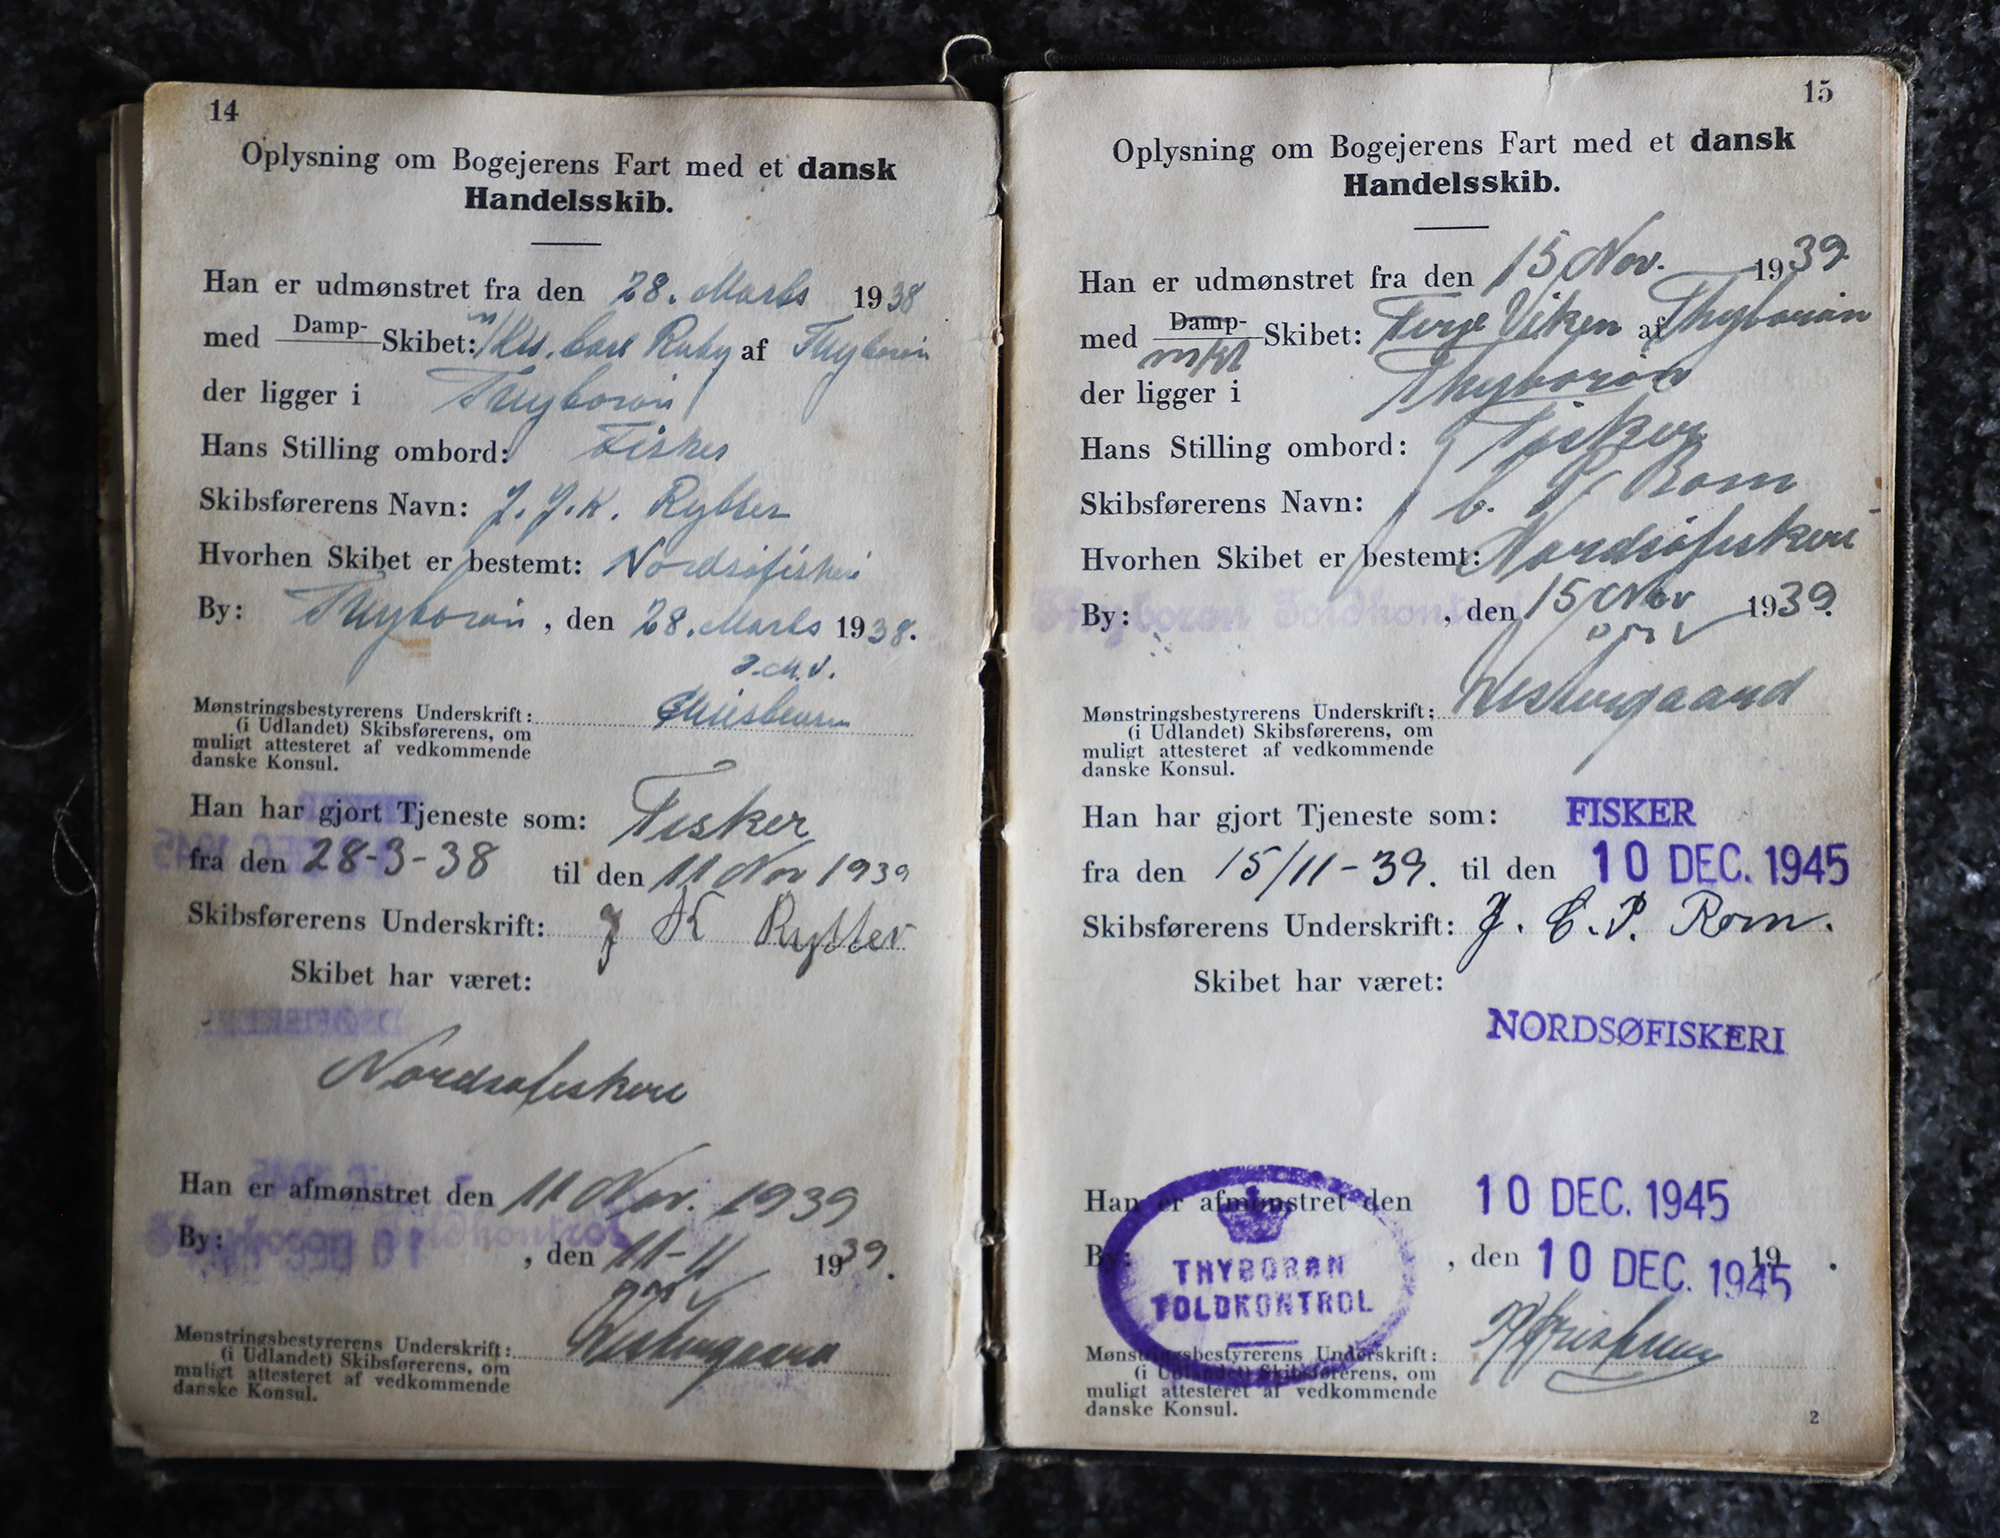 14
Oplysning om Bogejerens Fart med et dansk
Handelsskib.
Han er udmønstret fra den 28. Marts 1938
med Damp- Skibet: Carl Ruby af Thyborøn
der ligger i Thyborøn
Hans Stilling ombord: Fisker
Skibsførerens Navn: J. J. K. Rytter
Hvorhen Skibet er bestemt: Nordsøfiskeri
By: Thyborøn, den 28. Marts 1938.
Mønstringsbestyrerens Underskrift:
(i Udlandet) Skibsførerens, om
muligt attesteret af vedkommende
danske Konsul.
Han har gjort Tjeneste som: Fisker
fra den 28-3-38 til den 11 Nov 1939
Skibsførerens Underskrift: J K Rytter
Skibet har været:
Nordsøfiskeri
Han er afmønstret den 11 Nov. 1939
By: Thyborøn Toldkontrol, den 11-11 1939.
Westergaard
Mønstringsbestyrerens Underskrift:
(i Udlandet) Skibsførerens, om
muligt attesteret af vedkommende
danske Konsul.
15
Oplysning om Bogejerens Fart med et dansk
Handelsskib.
Han er udmønstret fra den 15 Nov. 1939.
med Damp- Skibet: Terje Viken af Thyborøn
der ligger i Thyborøn
Hans Stilling ombord: Fisker
Skibsførerens Navn: C. P. Rom
Hvorhen Skibet er bestemt: Nordsøfiskeri
By: Thyborøn Toldkontrol, den 15 Nov 1939.
Westergaard
Mønstringsbestyrerens Underskrift:
(i Udlandet) Skibsførerens, om
muligt attesteret af vedkommende
danske Konsul.
Han har gjort Tjeneste som: FISKER
fra den 15/11-39. til den 10 DEC. 1945
Skibsførerens Underskrift: J. C. P. Rom.
Skibet har været:
NORDSØFISKERI
Han er afmønstret den 10 DEC. 1945
By: , den 10 DEC. 1945 19 .
THYBORØN
TOLDKONTROL
Mønstringsbestyrerens Underskrift:
(i Udlandet) Skibsførerens, om
muligt attesteret af vedkommende
danske Konsul.
2